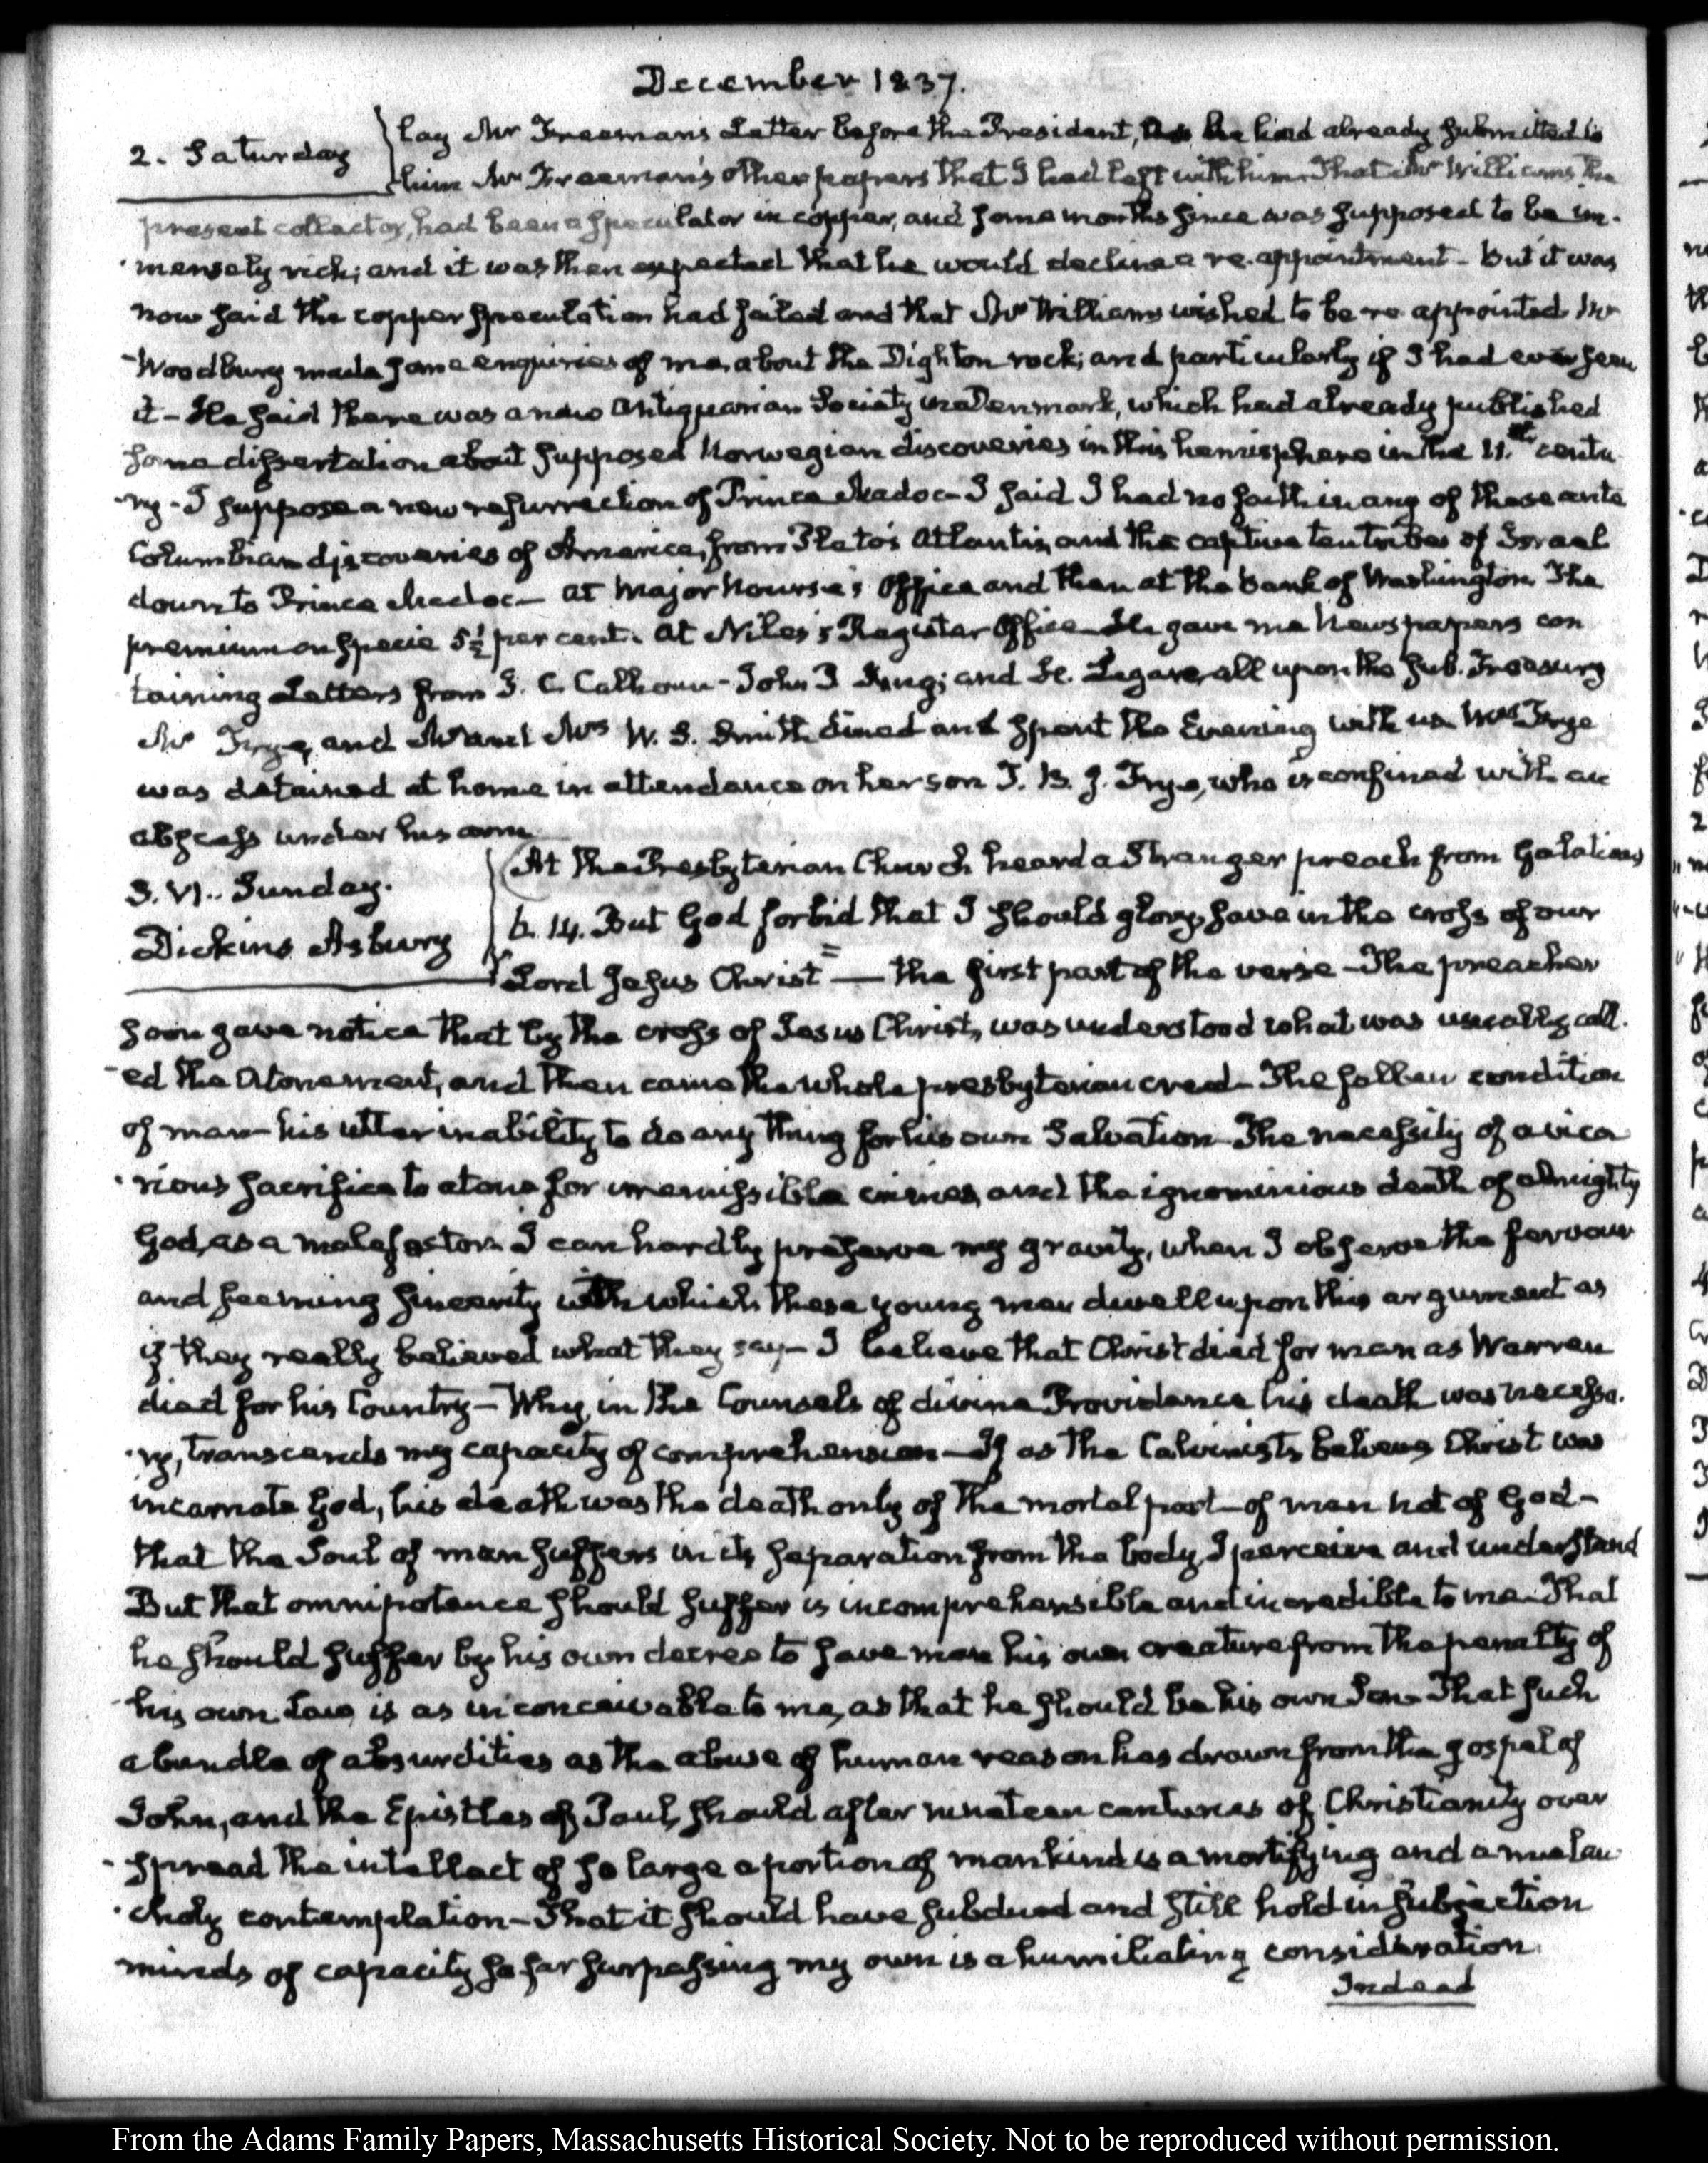 December 1837.
2. Saturday
lay Mr Freeman's Letter before the President, as he had already submitted to
him Mr Freeman's other papers that I had left with him. That Mr Williams the
present collector, had been a speculator in copper, and some months since was supposed to be im-
mensely rich; and it was then expected that he would decline a re-appointment - But it was
now said the copper speculation had failed and that Mr Williams wished to be re appointed. Mr
Woodbury made some enquiries of me, about the Dighton rock; and particularly if I had ever seen
it - He said there was a new Antiquarian Society in Denmark, which had already published
some dissertation about supposed Norwegian discoveries in this hemisphere in the 11.th centu
-ry - I suppose a new resurrection of Prince Madoc - I said I had no faith in any of these ante
Columbian discoveries of America, from Plato's Atlantis, and the captive ten tribes of Israel
down to Prince Madoc - At Major Nourse's Office and then at the Bank of Washington. The
premium on specie 5½ per cent. At Niles's Register Office - He gave me Newspapers con
taining Letters from J. C. Calhoun - John P King; and H. Legare, all upon the Sub. Treasury
Mr Frye, and Mr and Mrs W. S. Smith dined and spent the Evening with us. Mrs Frye
was detained at home in attendance on her son T. B. J. Frye, who is confined with an
abscess under his arm.
3. VI.. Sunday.
Dickins Asbury
At the Presbyterian Church heard a Stranger preach from Galatians
6. 14. But God forbid that I should glory, save in the cross of our
Lord Jesus Christ = — the first part of the verse - The preacher
soon gave notice that by the cross of Jesus Christ, was understood what was usually call.
-ed the Atonement, and then came the whole presbyterian creed - The fallen condition
of man - his utter inability to do any thing for his own Salvation - The necessity of a vica
-rious sacrifice to atone for irremissible crimes, and the ignominious death of almighty
God, as a malefactor. I can hardly preserve my gravity, when I observe the fervour
and seeming sincerity with which these young men dwell upon this argument as
if they really believed what they say - I believe that Christ died for man as Warren
died for his Country - Why, in the Counsels of divine Providence his death was necessa.
-ry, transcends my capacity of comprehension - If as the Calvinists believe Christ was
incarnate God, his death was the death only of the mortal part - of man not of God -
that the Soul of man suffers in its separation from the body, I perceive and understand
But that omnipotence should suffer is incomprehensible and incredible to me. That
he should suffer by his own decree to save man his own creature from the penalty of
his own Law, is as inconceivable to me, as that he should be his own Son. That such
a bundle of absurdities as the abuse of human reason has drawn from the gospel of
John, and the Epistles of Paul, should after nineteen centuries of Christianity over
-spread the intellect of so large a portion of mankind is a mortifying and a melan
-choly contemplation - That it should have subdued and still hold in subjection
minds of capacity so far surpassing my own is a humiliating consideration.
Indeed
From the Adams Family Papers, Massachusetts Historical Society. Not to be reproduced without permission.